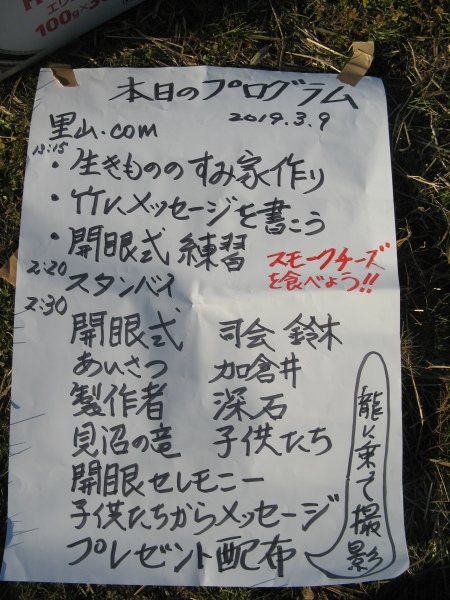 エリ
100g×3
本日のプログラム
2019.3.9
里山.com
・生きもののすみ家作り
・竹にメッセージを書こう
・開眼式 練習
スモークチーズ
を食べよう!!
2:20 スタンバイ
2:30
開眼式 司会 鈴木
あいさつ 加倉井
製作者 深石
見沼の竜 子供たち
開眼セレモニー
子供たちからメッセージ
プレゼント配布
龍に乗って撮影